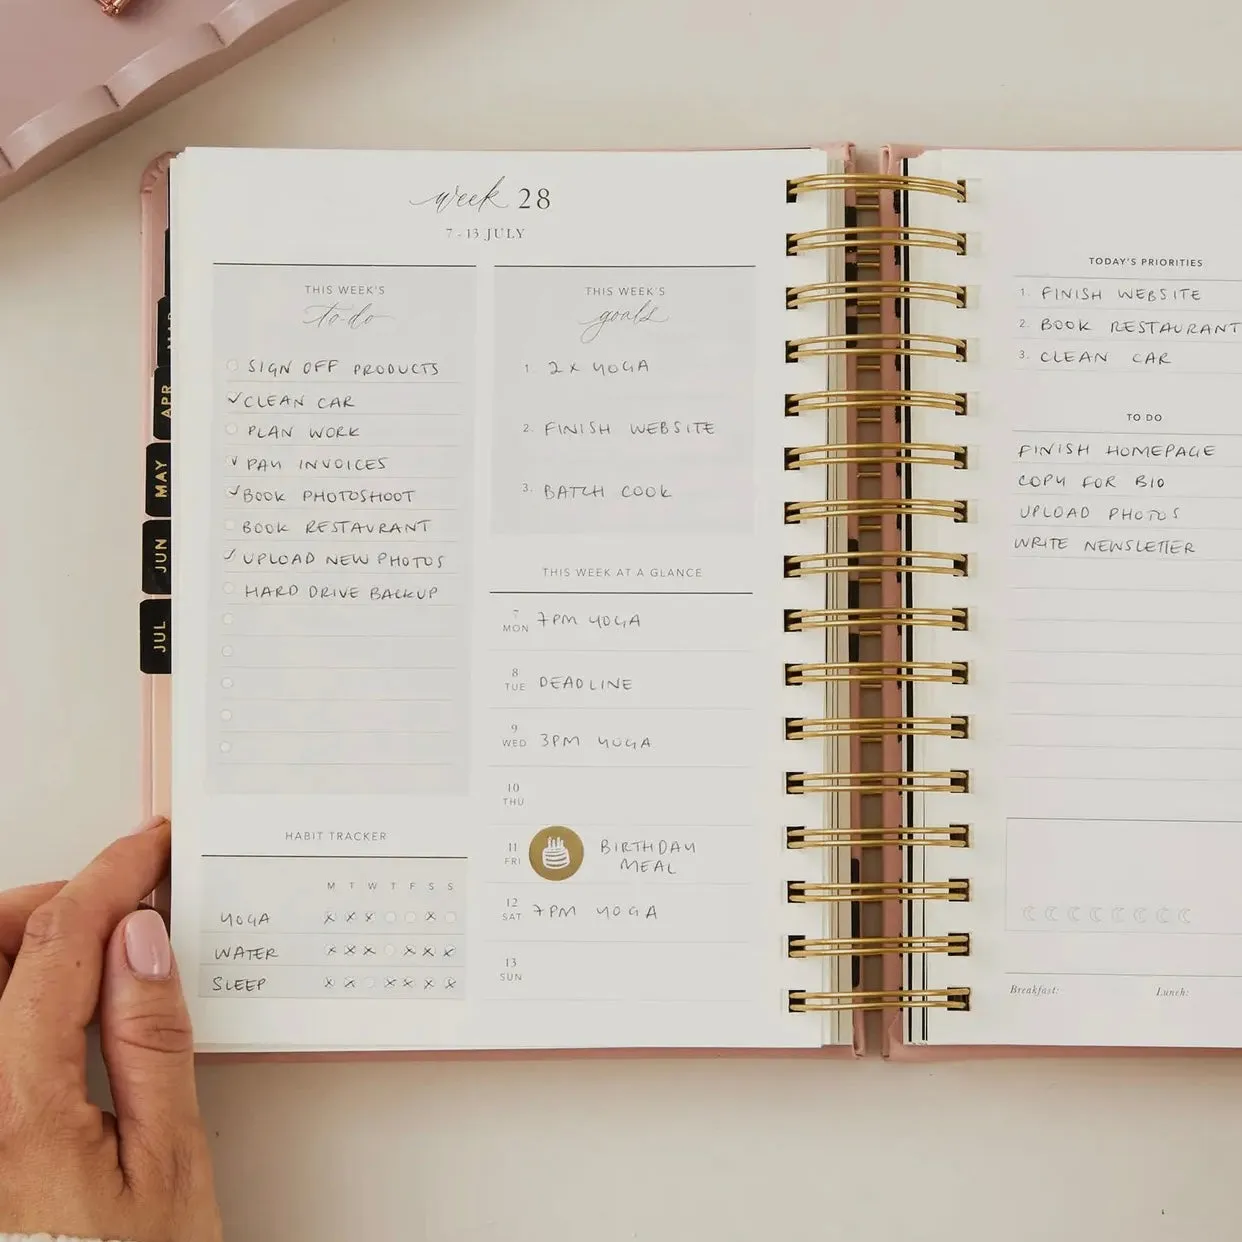 week 28
7 - 13 JULY
THIS WEEK'S
to-do
SIGN OFF PRODUCTS
CLEAN CAR
PLAN WORK
PAY INVOICES
BOOK PHOTOSHOOT
BOOK RESTAURANT
UPLOAD NEW PHOTOS
HARD DRIVE BACKUP
HABIT TRACKER
M T W T F S S
YOGA x x x x
WATER x x x x x x
SLEEP x x x x x x
THIS WEEK'S
goals
1. 2 x YOGA
2. FINISH WEBSITE
3. BATCH COOK
THIS WEEK AT A GLANCE
7
MON 7PM YOGA
8
TUE DEADLINE
9
WED 3PM YOGA
10
THU
11 BIRTHDAY
FRI MEAL
12
SAT 7PM YOGA
13
SUN
APR
MAY
JUN
JUL
TODAY'S PRIORITIES
1. FINISH WEBSITE
2. BOOK RESTAURANT
3. CLEAN CAR
TO DO
FINISH HOMEPAGE
COPY FOR BIO
UPLOAD PHOTOS
WRITE NEWSLETTER
Breakfast: Lunch: